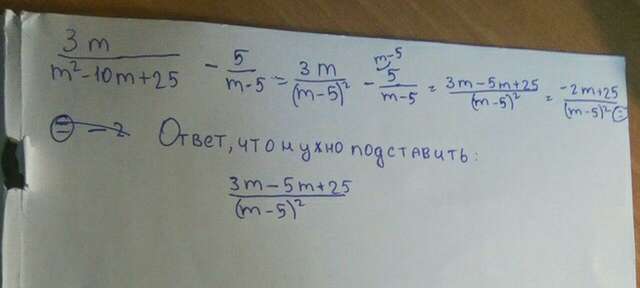 3m/(m²-10m+25) - 5/(m-5) = 3m/(m-5)² - 5/(m-5) ^(m-5) = (3m-5m+25)/(m-5)² = (-2m+25)/(m-5)² ⊜
⊜ -2 Ответ, что нужно подставить:
(3m-5m+25)/(m-5)²